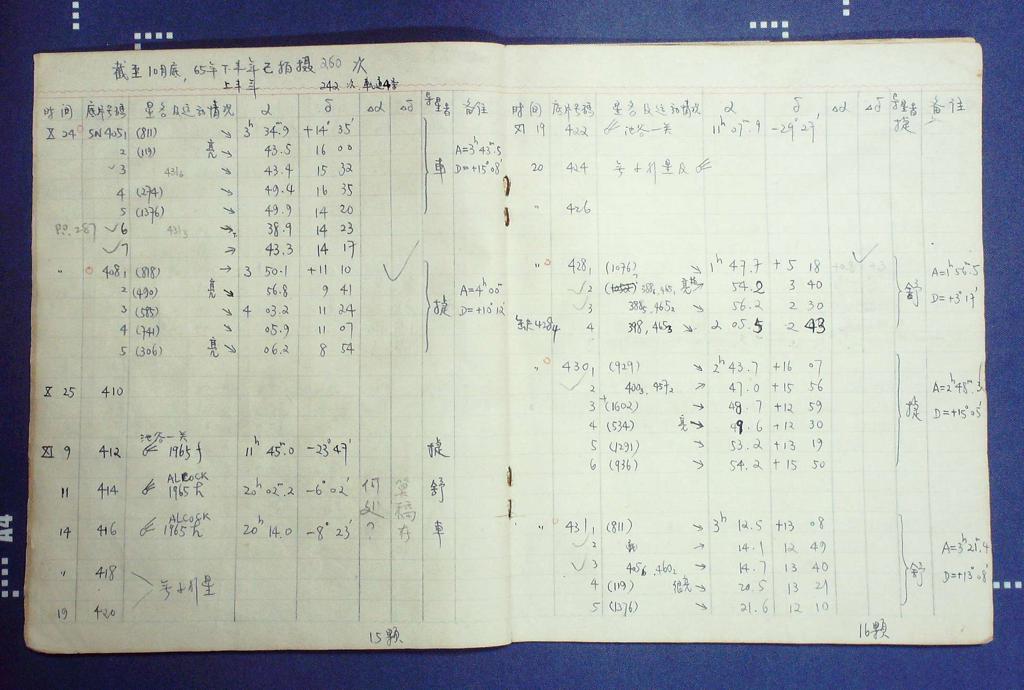 截至10月底, 65年下半年已拍摄260次
上半年 242次
时间 底片号码 星名及运动情况 α δ Δα Δδ 导星者 备注
X 24 SN 4051 (811) → 3h 34m.9 +14° 35'
2 (119) 亮 ↘ 43.5 16 00 A=3h43m.5
✓3 4316 ↘ 43.4 15 32 車 D=+15°08'
4 (274) ↘ 49.4 16 35
5 (1376) → 49.9 14 20
✓6 4313 38.9 14 23
✓7 → 43.3 14 17
" 4081 (818) → 3 50.1 +11 10
2 (490) 亮 ↘ 56.8 9 41 A=4h00m
3 (585) ↘ 4 03.2 11 24 捷 D=+10°12'
4 (741) → 05.9 11 07
5 (306) 亮 ↘ 06.2 8 54
X 25 410
池谷一关
XI 9 412 1965 f 11h 45m.0 -23° 47' 捷
ALCOCK
11 414 1965 h 20h 02m.2 -6° 02' 何 舒
ALCOCK
14 416 1965 h 20h 14.0 -8° 23' ? 車
" 418
无小行星
19 420
15顆
时间 底片号码 星名及运动情况 α δ Δα Δδ 导星者 备注
XI 19 422 池谷一关 11h 07m.9 -29° 27' 捷
20 424 无小行星及
" 426
" 4281 (1076) → 1h 47.7 +5 18 A=1h56m.5
✓2 3864, 4651 54.2 3 40 舒
✓3 3865, 4652 → 56.2 2 30 D=+3°17'
4 398, 4653 ↘ 2 05.5 2 43
" 4301 (929) → 2h 43.7 +16 07
✓2 4003, 4572 → 47.0 +15 56 A=2h48m.3
3 (1602) → 48.7 +12 59 捷 D=+15°05'
4 (534) 亮 49.6 +12 30
5 (1291) → 53.2 +13 19
6 (936) → 54.2 +15 50
" 4311 (811) → 3h 12.5 +13 08
✓2 → 14.1 12 49 A=3h21m.4
✓3 4056, 4602 → 14.7 13 40 舒
4 (119) 很亮 → 20.5 13 21 D=+13°08'
5 (1376) → 21.6 12 10
16顆